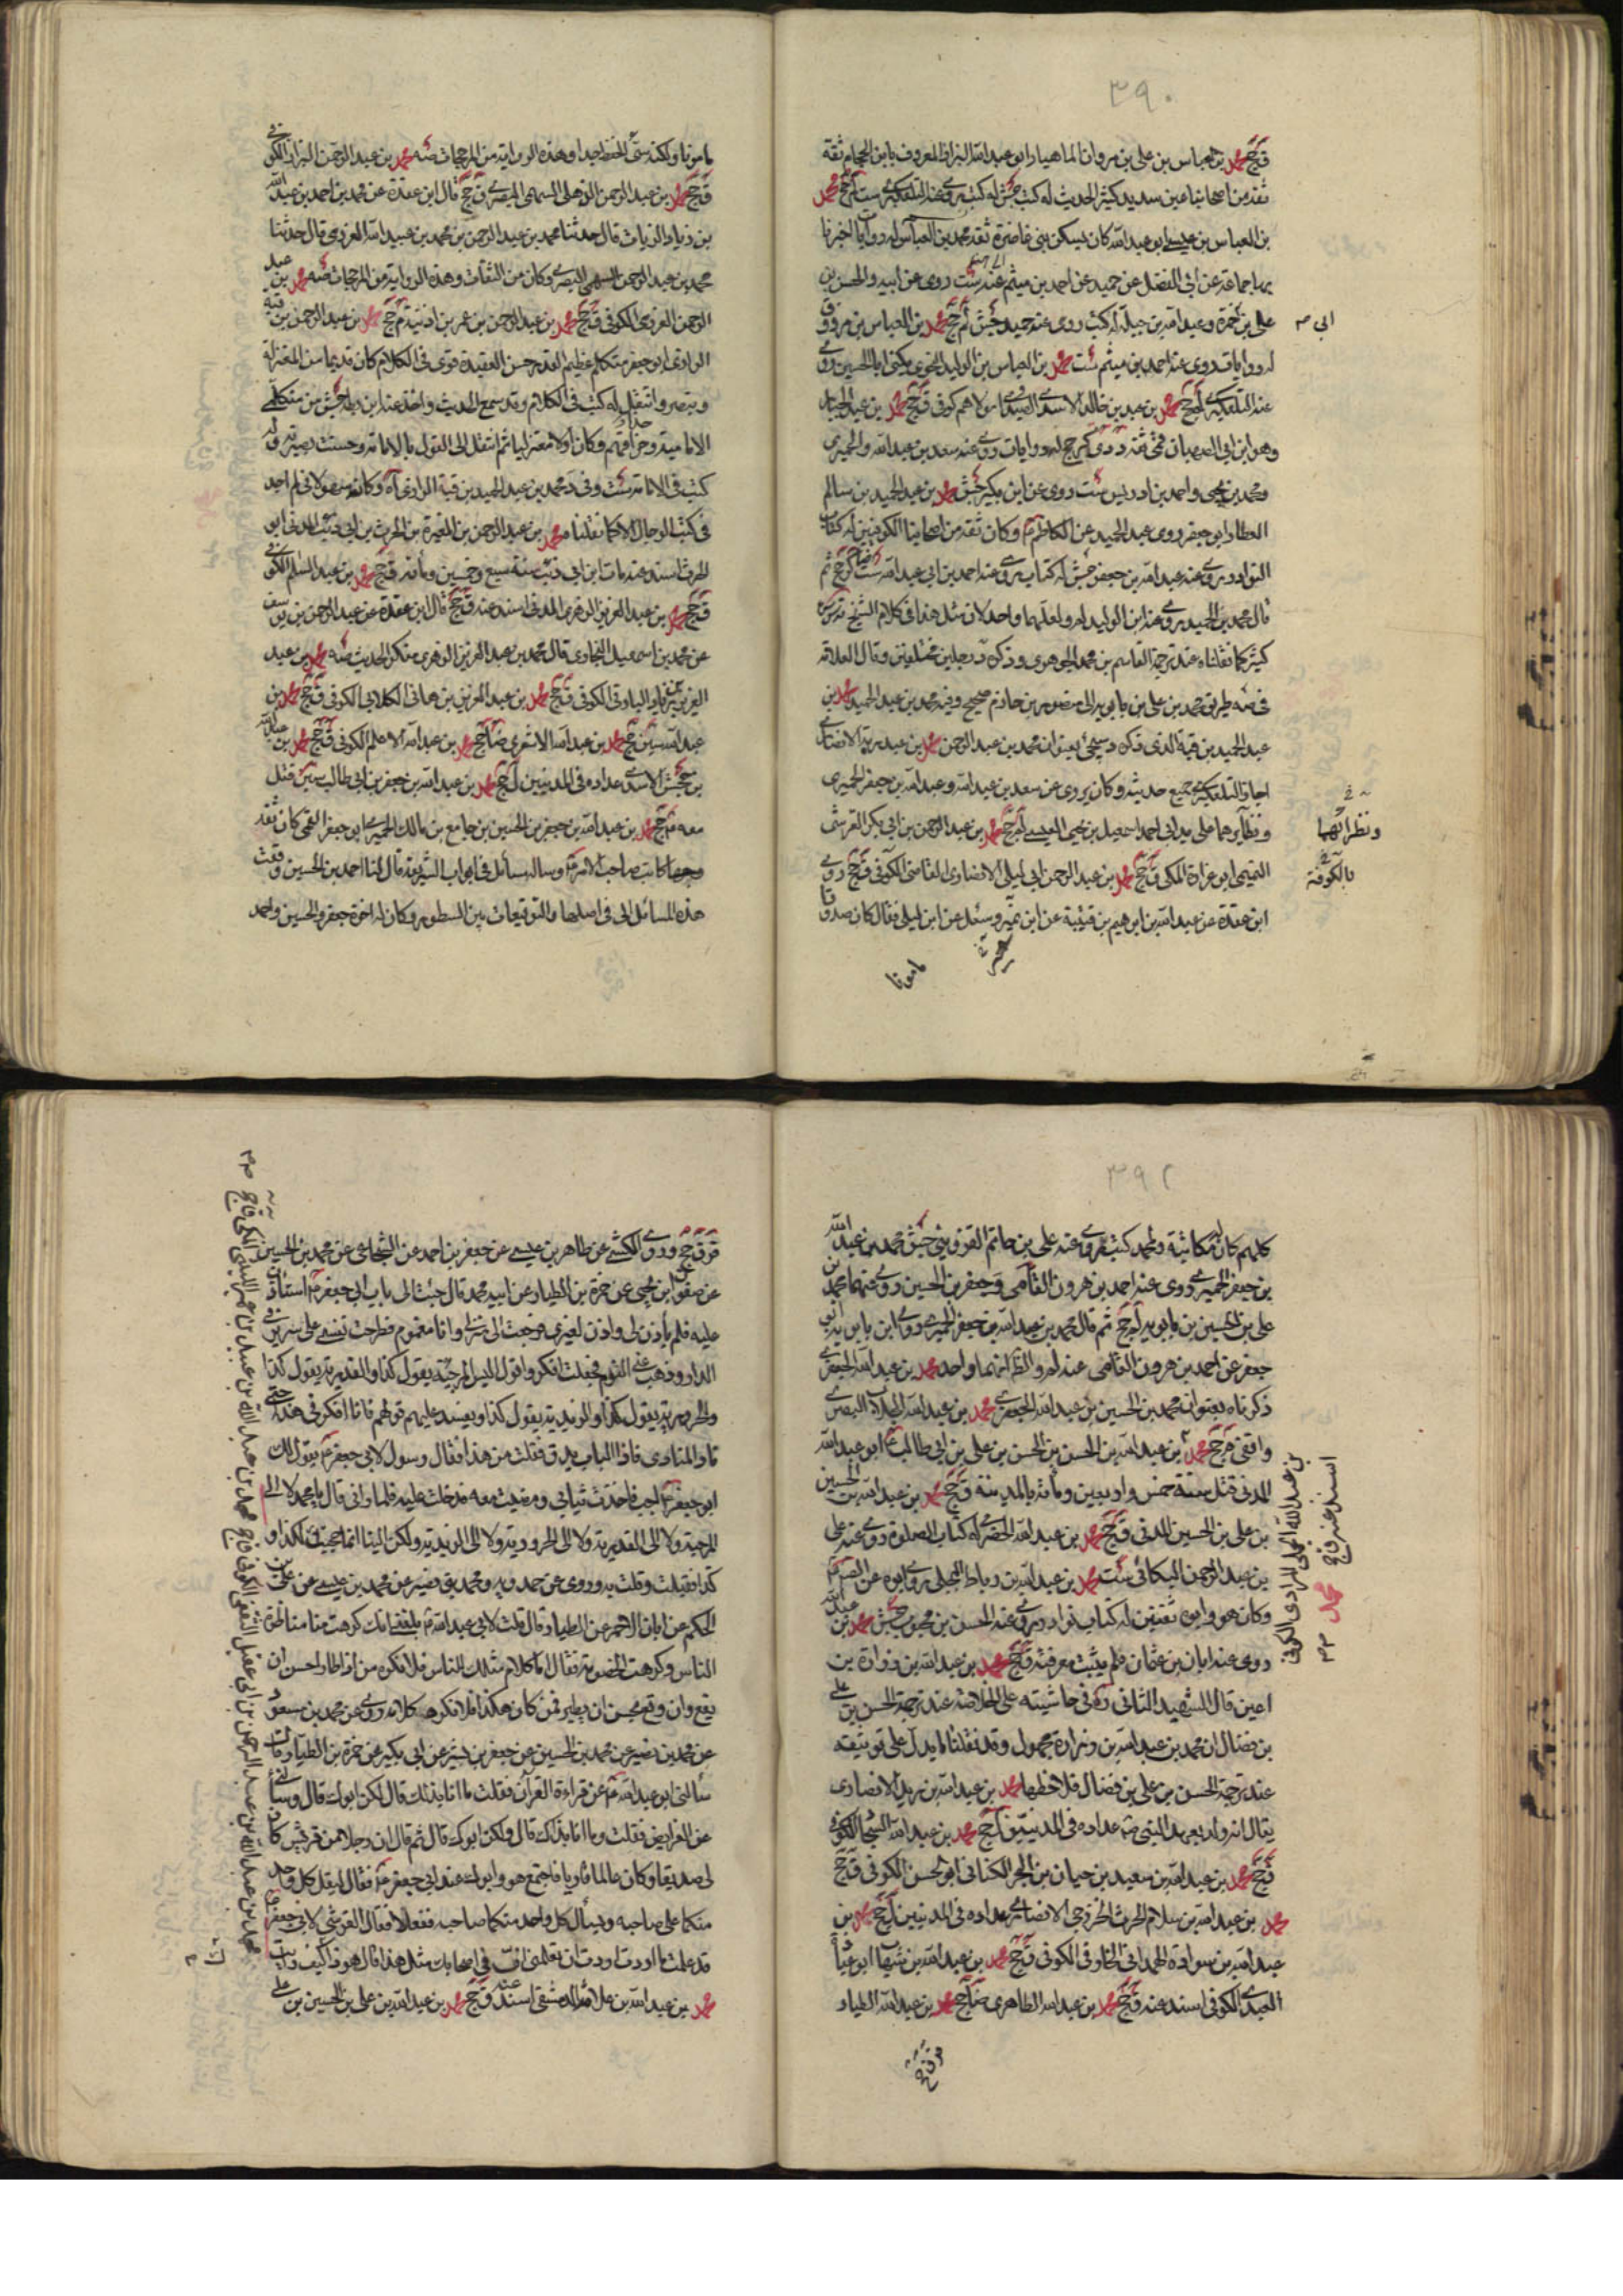 ٣٩٠
محمد بن العباس بن علي بن مروان الماهيار ابو عبد الله البزاز المعروف بابن الحجام ثقة
ثقة من اصحابنا عين سديد كثير الحديث له كتب
بن العباس بن عيسى ابو عبد الله كان يسكن بني غاضرة ثقة محمد بن العباس له روايات اخبرنا
بها جماعة عن ابي المفضل عن حميد عن احمد بن ميثم عنه ست روى عن ابيه والحسن بن
علي بن حمزة وعبد الله بن جبلة له كتب روى عنه حميد جش لم جخ محمد بن العباس بن مرزوق
له روايات روى عنه احمد بن ميثم ست محمد بن العباس بن الوليد النحوي يكنى ابا الحسين روى
عنه التلعكبري لم جخ محمد بن عبد بن خالد الاسدي الصيداوي مولاهم كوفي ق جخ محمد بن عبد الجبار
وهو ابن ابي الصهبان قمي ثقة دي كر جخ له روايات روى عنه سعد بن عبد الله والحميري
ومحمد بن يحيى واحمد بن ادريس ست روى عن ابن بكير جش محمد بن عبد الحميد بن سالم
العطار ابو جعفر روى عبد الحميد عن الكاظم وكان ثقة من اصحابنا الكوفيين له كتاب
النوادر روى عنه عبد الله بن جعفر جش له كتاب روى عنه احمد بن ابي عبد الله ست
قال محمد بن عبد الحميد روى عنه ابن الوليد
كثير كما نقلناه عند ترجمة القاسم بن محمد الجوهري وذكره د رجلين مختلفين وقال العلامة
في طريق محمد بن علي بن بابويه الى منصور بن حازم صحيح وفيه محمد بن عبد الحميد محمد بن
عبد الحميد بن قبة الذي ذكره د سيجئ بعنوان محمد بن عبد الرحمن محمد بن عبد ربه الانصاري
اجاز التلعكبري جميع حديثه وكان يروي عن سعد بن عبد الله وعبد الله بن جعفر الحميري
ونظائرهما على يد ابي احمد اسمعيل بن يحيى العبسي لم جخ محمد بن عبد الرحمن بن ابي بكر القرشي
التيمي ابو غرارة المكي ق جخ محمد بن عبد الرحمن ابي ليلى الانصاري القاضي الكوفي ق جخ روى
ابن عقدة عن عبد الله بن ابراهيم بن قتيبة عن ابن نمير وسئل عن ابن ليلى فقال كان صدوقا
مامونا
ونظرائهما
بالكوفة
مامونا ولكنه سئ الحفظ جدا وهذه الرواية من المرجحات محمد بن عبد الرحمن البزاز الكوفي
ق جخ محمد بن عبد الرحمن الذهلي السهمي البصري ق جخ قال ابن عقدة عن محمد بن احمد بن عبد الله
بن زياد الزيات قال حدثنا محمد بن عبد الرحمن بن محمد بن عبيد الله العرزمي قال حدثنا
محمد بن عبد الرحمن السهمي البصري وكان من الثقات وهذه الرواية من المرجحات محمد بن عبد
الرحمن العرزمي الكوفي ق جخ محمد بن عبد الرحمن بن عمر بن اذينة م جخ محمد بن عبد الرحمن بن قبة
الرازي ابو جعفر متكلم عظيم القدر حسن العقيدة قوي في الكلام كان قديما من المعتزلة
وتبصر وانتقل له كتب في الكلام وقد سمع الحديث واخذ عنه ابن بطة جش من متكلمي
الامامية وحذاقهم وكان اولا معتزليا ثم انتقل الى القول بالامامة وحسنت بصيرته وله
كتب في الامامة ست وفي د محمد بن عبد الحميد بن قبة الرازي
في كتب الرجال الا كما نقلنا محمد بن عبد الرحمن بن المغيرة بن الحرث بن ابي ذئب المدني ابو
الحرث اسند عنه مات ابن ابي ذئب سنة سبع وخمسين ومائة ق جخ محمد بن عبد السلم الكوفي
ق جخ محمد بن عبد العزيز الزهري المدني اسند عنه ق جخ قال ابن عقدة عن عبد الرحمن بن يوسف
عن محمد بن اسمعيل البخاري قال محمد بن عبد العزيز الزهري منكر الحديث محمد بن عبد
العزيز البارقي الكوفي ق جخ محمد بن عبد العزيز بن هاني الكلابي الكوفي ق جخ محمد بن
عبد الله جخ محمد بن عبد الله الاشعري ضا جخ محمد بن عبد الله الاعلم الكوفي ق جخ محمد بن عبد الله
بن جحش الاسدي عداده في المدنيين ل جخ محمد بن عبد الله بن جعفر بن ابي طالب قتل
معه جخ محمد بن عبد الله بن جعفر بن الحسين بن جامع بن مالك الحميري ابو جعفر القمي كان ثقة
وجها كاتب صاحب الامر وساله مسائل في ابواب الشريعة قال لنا احمد بن الحسين وقعت
هذه المسائل الي في اصلها والتوقيعات بين السطور وكان له اخوة جعفر والحسين واحمد
٣٩٢
كلهم كان له مكاتبة ولمحمد كتب روى عنه علي بن حاتم القزويني جش محمد بن عبد الله
بن جعفر الحميري روى عنه احمد بن هرون الفامي وجعفر بن الحسين روى عنهما محمد بن
علي بن الحسين بن بابويه لم جخ ثم قال محمد بن عبد الله بن جعفر الحميري روى ابن بابويه
جعفر عن احمد بن هرون الفامي عنه والظاهر انهما واحد محمد بن عبد الله الجعفري
ذكرناه بعنوان محمد بن الحسين بن عبد الله الجعفري محمد بن عبد الله الجلاب البصري
واقفي م جخ محمد بن عبد الله بن الحسن بن الحسن بن علي بن ابي طالب ابو عبد الله
المدني قتل سنة خمس واربعين ومائة بالمدينة ق جخ محمد بن عبد الله بن الحسين
بن علي بن الحسين المدني ق جخ محمد بن عبد الله الحضرمي له كتاب الصلوة روى عنه علي
بن عبد الرحمن البكائي ست محمد بن عبد الله بن رباط البجلي روى ابوه عن
وكان هو وابوه ثقتين له كتاب نوادر روى عنه الحسن بن محبوب جش محمد بن عبد الله
روى عنه ابان بن عثمان فلم يثبت معرفته ق جخ محمد بن عبد الله بن زرارة بن
اعين قال الشهيد الثاني في حاشيته على الخلاصة عند ترجمة الحسن بن علي
بن فضال ان محمد بن عبد الله بن زرارة مجهول وقد نقلنا ما يدل على توثيقه
عند ترجمة الحسن بن علي بن فضال فلاحظها محمد بن عبد الله بن زيد الانصاري
يقال انه ولد بعهد النبي عداده في المدنيين ل جخ محمد بن عبد الله الكوفي
ق جخ محمد بن عبد الله بن سعيد بن حيان بن الحر الكناني ابو الحسن الكوفي ق جخ
محمد بن عبد الله بن سلام الحرث الخزرجي الانصاري عداده في المدنيين ل جخ محمد بن
عبد الله بن سوادة الهمداني الخارقي الكوفي ق جخ محمد بن عبد الله بن شهاب ابو
العبدي الكوفي اسند عنه ق جخ محمد بن عبد الله الطاهري ضا جخ محمد بن عبد الله الطيار
محمد بن عبد الله الجملي المرادي الكوفي
اسند عنه ق جخ
ق ر جخ وروى الكشي عن طاهر بن عيسى عن جعفر بن احمد عن الشجاعي عن محمد بن الحسين
عن صفوان بن يحيى عن حمزة بن الطيار عن ابيه محمد قال جئت الى باب ابي جعفر استاذن
عليه فلم ياذن لي واذن لغيري فرجعت الى منزلي وانا مغموم فطرحت نفسي على سرير في
الدار وذهب عني النوم فجعلت افكر واقول اليس المرجئة يقول كذا والقدرية يقول كذا
والحرورية يقول كذا والزيدية يقول كذا ويفسد عليهم قولهم فانا افكر في هذا حتى
نادى المنادي فاذا الباب يدق فقلت من هذا فقال رسول لابي جعفر يقول لك
ابو جعفر اجب فاخذت ثيابي ومضيت معه فدخلت عليه فلما راني قال يا محمد لا الى
المرجئة ولا الى القدرية ولا الى الحرورية ولا الى الزيدية ولكن الينا انما حجبتك لكذا و
كذا فقبلت وقلت به وروى عن حمدويه ومحمد بن نصير عن محمد بن عيسى عن علي بن
الحكم عن ابان الاحمر عن الطيار قال قلت لابي عبد الله بلغني انك كرهت منا مناظرة
الناس وكرهت الخصومة فقال اما كلام مثلك للناس فلا نكره من اذا طار احسن ان
يقع وان وقع يحسن ان يطير فمن كان هكذا فلا نكره كلامه روى عن محمد بن مسعود
عن محمد بن نصير عن محمد بن الحسين عن جعفر بن بشير عن ابي بكير عن حمزة بن الطيار قال
سألني ابو عبد الله عن قراءة القرآن فقلت ما انا بذلك قال لكن ابوك قال وسألني
عن الفرايض فقلت وما انا بذلك قال ولكن ابوك قال ثم قال ان رجلا من قريش كان
لي صديقا وكان عالما قاريا فاجتمع هو وابوك عند ابي جعفر فقال ليقبل كل واحد
منكما على صاحبه ويسأل كل واحد منكما صاحبه ففعلا فقال القرشي لابي جعفر
قد علمت ما اردت اردت ان تعلمني ان في اصحابك مثل هذا قال هو ذاك كيف رايت
محمد بن عبد الله بن علاثة الدمشقي اسند عنه ق جخ محمد بن عبد الله بن علي بن الحسين بن علي